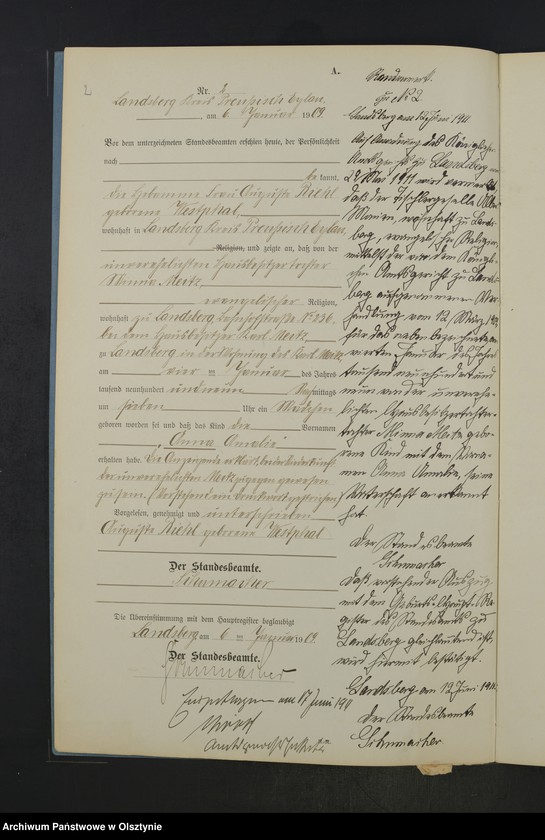 A.
2
Nr. 2
Landsberg Kreis Preußisch Eylau,
am 6. Januar 1909.
Vor dem unterzeichneten Standesbeamten erschien heute, der Persönlichkeit
nach
bekannt,
die Hebamme Frau Auguste Riehl
geborene Westphal
wohnhaft in Landsberg Kreis Preußisch Eylau,
Religion, und zeigte an, daß von der
unverehelichten Hausbesitzertochter
Minna Meitz,
evangelischer Religion,
wohnhaft zu Landsberg Bahnhofstraße No 236
bei dem Hausbesitzer Karl Meitz,
zu Landsberg in der Wohnung des Karl Meitz
am vier ten Januar des Jahres
tausend neunhundert und neun mittags
um sieben Uhr ein Mädchen
geboren worden sei und daß das Kind die Vornamen
Anna Amalie
erhalten habe. Die Anzeigende erklärt, bei der Niederkunft
der unverehelichten Meitz zugegen gewesen
zu sein. (Vorstehend ein Druckwort gestrichen)
Vorgelesen, genehmigt und unterschrieben
Auguste Riehl geborene Westphal
Der Standesbeamte.
Schumacher
Die Übereinstimmung mit dem Hauptregister beglaubigt
Landsberg am 6 ten Januar 1909.
Der Standesbeamte.
Schumacher
am 17 Juni 1911
Zu No 2.
Landsberg am Juni 1911.
Auf Anordnung des Königlichen
Amtsgerichts zu Landsberg vom
22 Mai 1911 wird vermerkt,
daß der Tischlergeselle
wohnhaft zu Lands-
berg, evangelischer Religion,
mittelst der vor dem Königli-
chen Amtsgericht zu Lands-
berg aufgenommenen Ver-
handlung vom 12. März 1911
für das nebenbezeichnete am
vierten Januar des Jahres
tausend neunhundert und
neun von der unverehe-
lichten Hausbesitzertochter
Minna Meitz gebo-
rene Kind mit dem Vorna-
men Anna Amalie, seine
Vaterschaft anerkannt
hat.
Der Standesbeamte
Schumacher
Daß vorstehender Auszug
mit dem Geburts-Haupt-Re-
gister des Standesamts zu
Landsberg gleichlautend ist,
wird hiermit bestätigt.
Landsberg am 12 Juni 1911.
Der Standesbeamte
Schumacher
Archiwum Państwowe w Olsztynie